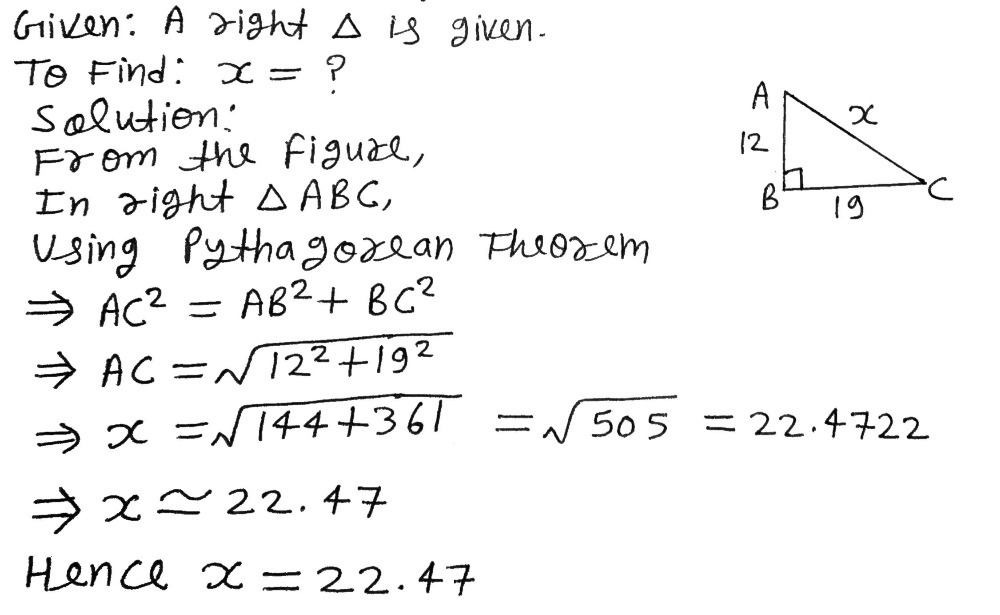 Given: A right △ is given.
To Find: x = ?
Solution:
From the figure,
In right △ ABC,
Using Pythagorean Theorem
⇒ AC² = AB² + BC²
⇒ AC = √(12² + 19²)
⇒ x = √(144 + 361) = √505 = 22.4722
⇒ x ≃ 22.47
Hence x = 22.47
A
x
12
B
19
C